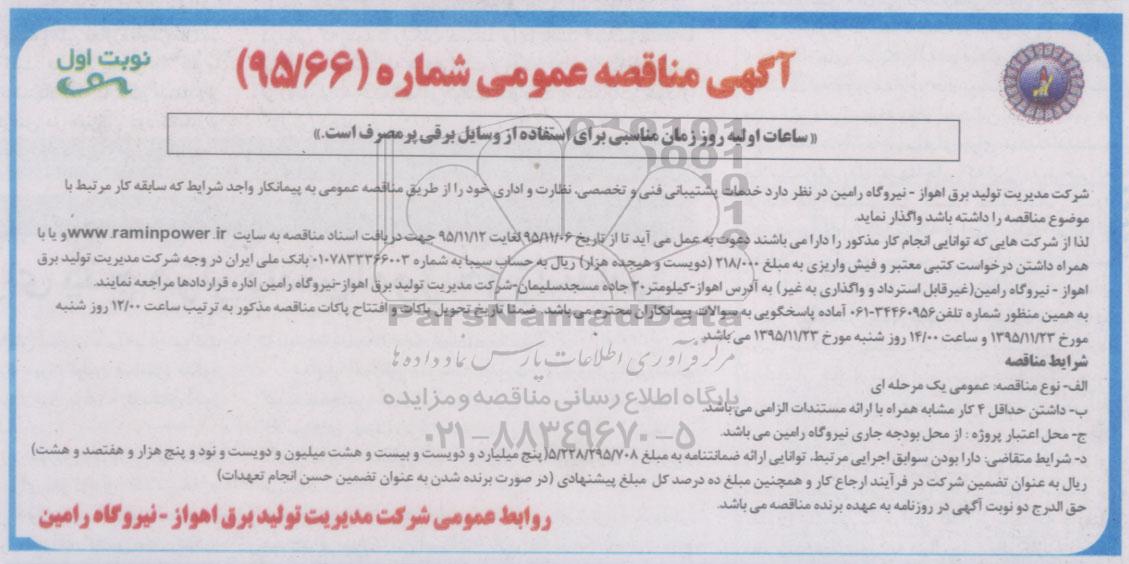 نوبت اول
آگهی مناقصه عمومی شماره (۹۵/۶۶)
«ساعات اولیه روز زمان مناسبی برای استفاده از وسایل برقی پر مصرف است.»
شرکت مدیریت تولید برق اهواز - نیروگاه رامین در نظر دارد خدمات پشتیبانی فنی و تخصصی، نظارت و اداری خود را از طریق مناقصه عمومی به پیمانکار واجد شرایط که سابقه کار مرتبط با
موضوع مناقصه را داشته باشد واگذار نماید.
لذا از شرکت هایی که توانایی انجام کار مذکور را دارا می باشند دعوت به عمل می آید تا از تاریخ ۹۵/۱۱/۰۶ لغایت ۹۵/۱۱/۱۲ جهت دریافت اسناد مناقصه به سایت www.raminpower.ir و یا با
همراه داشتن درخواست کتبی معتبر و فیش واریزی به مبلغ ۲۱۸/۰۰۰ (دویست و هیجده هزار) ریال به حساب سیبا به شماره ۰۱۰۷۸۳۳۳۶۶۰۰۳ بانک ملی ایران در وجه شرکت مدیریت تولید برق
اهواز - نیروگاه رامین(غیرقابل استرداد و واگذاری به غیر) به آدرس اهواز-کیلومتر۲۰ جاده مسجدسلیمان-شرکت مدیریت تولید برق اهواز-نیروگاه رامین اداره قراردادها مراجعه نمایند.
به همین منظور شماره تلفن ۳۴۴۶۰۹۵۶-۰۶۱ آماده پاسخگویی به سوالات پیمانکاران محترم می باشد. ضمنا تاریخ تحویل پاکات و افتتاح پاکات مناقصه مذکور به ترتیب ساعت ۱۲/۰۰ روز شنبه
مورخ ۱۳۹۵/۱۱/۲۳ و ساعت ۱۴/۰۰ روز شنبه مورخ ۱۳۹۵/۱۱/۲۳ می باشد.
شرایط مناقصه
الف- نوع مناقصه: عمومی یک مرحله ای
ب- داشتن حداقل ۴ کار مشابه همراه با ارائه مستندات الزامی می باشد.
ج- محل اعتبار پروژه : از محل بودجه جاری نیروگاه رامین می باشد.
د- شرایط متقاضی: دارا بودن سوابق اجرایی مرتبط، توانایی ارائه ضمانتنامه به مبلغ ۵/۲۲۸/۲۹۵/۷۰۸(پنج میلیارد و دویست و بیست و هشت میلیون و دویست و نود و پنج هزار و هفتصد و هشت)
ریال به عنوان تضمین شرکت در فرآیند ارجاع کار و همچنین مبلغ ده درصد کل مبلغ پیشنهادی (در صورت برنده شدن به عنوان تضمین حسن انجام تعهدات)
حق الدرج دو نوبت آگهی در روزنامه به عهده برنده مناقصه می باشد.
روابط عمومی شرکت مدیریت تولید برق اهواز -نیروگاه رامین
ParsNamadData
مرکز فرآوری اطلاعات پارس نماد داده ها
پایگاه اطلاع رسانی مناقصه و مزایده
۰۲۱-۸۸۳۴۹۶۷۰-۵